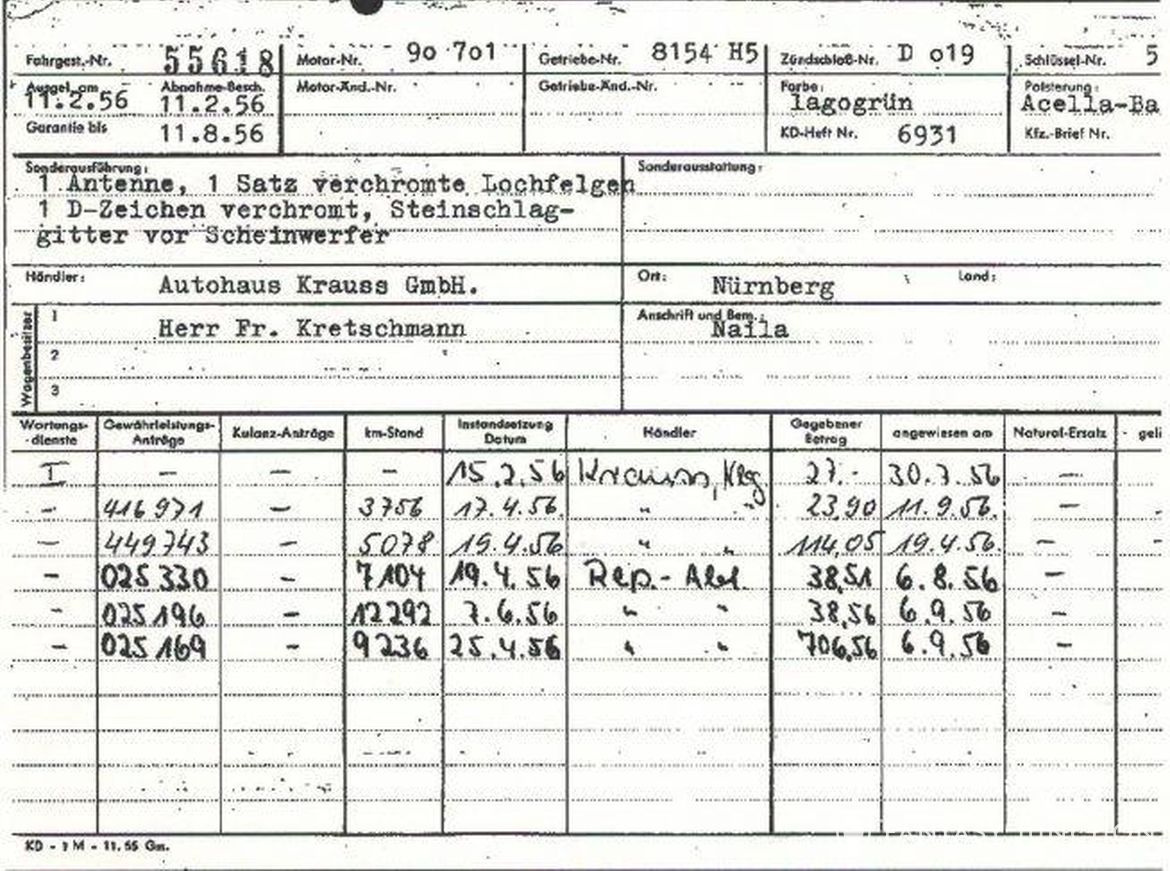 Fahrgest.-Nr. 55618 Motor-Nr. 90 701 Getriebe-Nr. 8154 H5 Zündschloß-Nr. D 019 Schlüssel-Nr. 5
Ausgel. am 11.2.56 Abnahme-Besch. 11.2.56 Motor-Änd.-Nr. Getriebe-Änd.-Nr. Farbe: lagogrün Polsterung: Acella-Ba
Garantie bis 11.8.56 KD-Heft Nr. 6931 Kfz.-Brief Nr.
Sonderausführung: Sonderausstattung:
1 Antenne, 1 Satz verchromte Lochfelgen
1 D-Zeichen verchromt, Steinschlag-
gitter vor Scheinwerfer
Händler: Autohaus Krauss GmbH. Ort: Nürnberg Land:
Wagenbesitzer 1 Herr Fr. Kretschmann Anschrift und Bem.: Naila
2
3
Wartungs-dienste Gewährleistungs-Anträge Kulanz-Anträge km-Stand Instandsetzung Datum Händler Gegebener Betrag angewiesen am Natural-Ersatz geli
I - - - 15.2.56 Krauss, Nbg. 27.- 30.7.56 -
- 416971 - 3756 17.4.56. " " 23,90 11.9.56. - -
- 449743 - 5078 19.4.56 " " 114,05 19.4.56. - -
- 025330 - 7104 19.4.56 Rep.- Abt. 38,51 6.8.56 -
- 025196 - 12292 7.6.56 " " 38,56 6.9.56 -
- 025169 - 9236 25.4.56 " " 706,56 6.9.56 -
KD - 1 M - 11. 55 Gm.
FANTASY JUNCTION